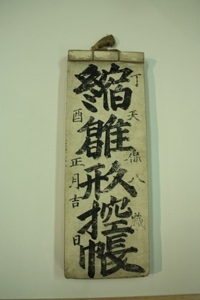 丁 天保八歳
縮雛形控帳
酉 正月吉日